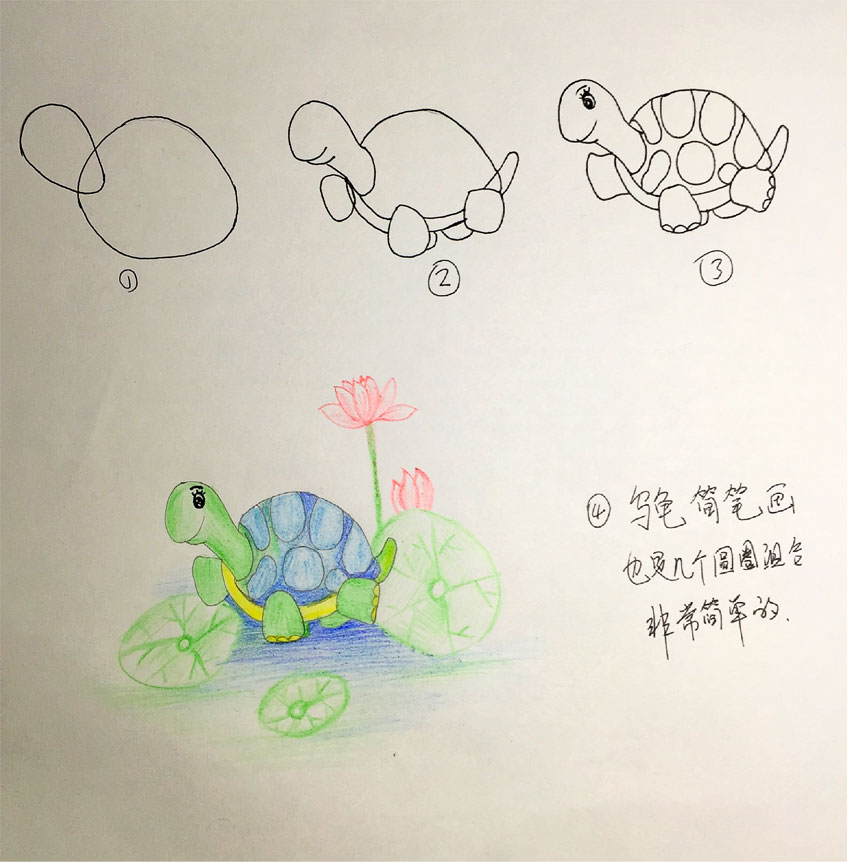 ① ② ③
④ 乌龟简笔画
也是几个圆圈组合
非常简单的.